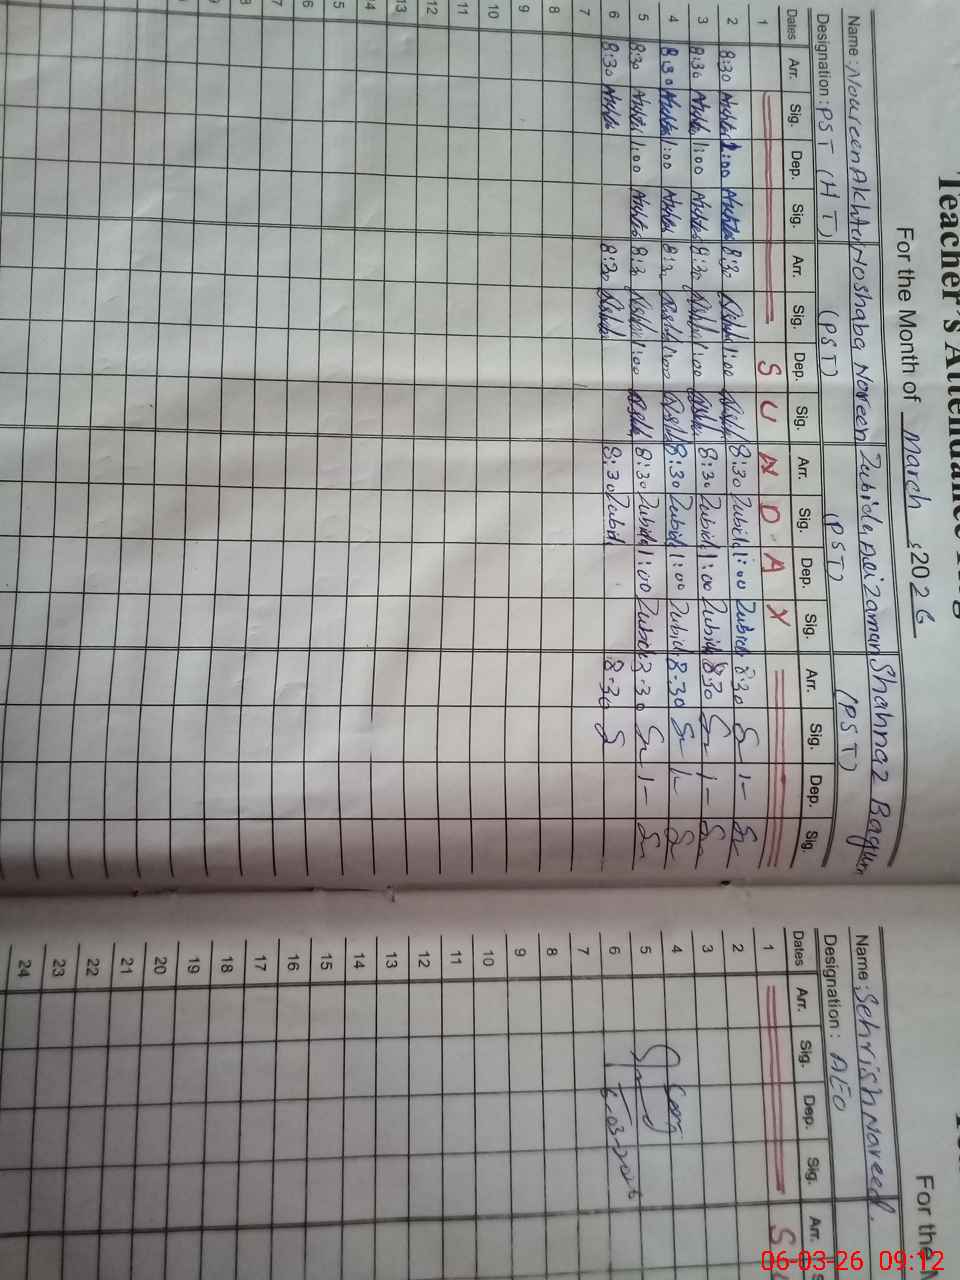 Teacher's Attendance Reg
For the Month of March 2026
Name: Noureen Akhter Noshaba Noreen Zubida Adizaman Shahnaz Baqum
Designation: PST (HT) (PST) (PST) (PST)
Dates Arr. Sig. Dep. Sig. Arr. Sig. Dep. Sig. Arr. Sig. Dep. Sig. Arr. Sig. Dep. Sig.
1 SUNDAY
2 8:30 1:00 8:30 1:00 8:30 Zubida 1:00 Zubida 8:30 1-
3 8:30 1:00 8:30 1:00 8:30 Zubida 1:00 Zubida 8:30 1-
4 8:30 1:00 8:30 1:00 8:30 Zubida 1:00 Zubida 8:30 1-
5 8:30 1:00 8:30 1:00 8:30 Zubida 1:00 Zubida 8:30 1-
6 8:30 8:30 8:30 Zubida 8:30
7
8
9
10
11
12
13
14
5
6
7
8
For the M
Name: Sehrish Naveed.
Designation: AEO
Dates Arr. Sig. Dep. Sig. Arr.
1 S
2
3
4
5
6 6-03-2026
7
8
9
10
11
12
13
14
15
16
17
18
19
20
21
22
23
24
06-03-26 09:12